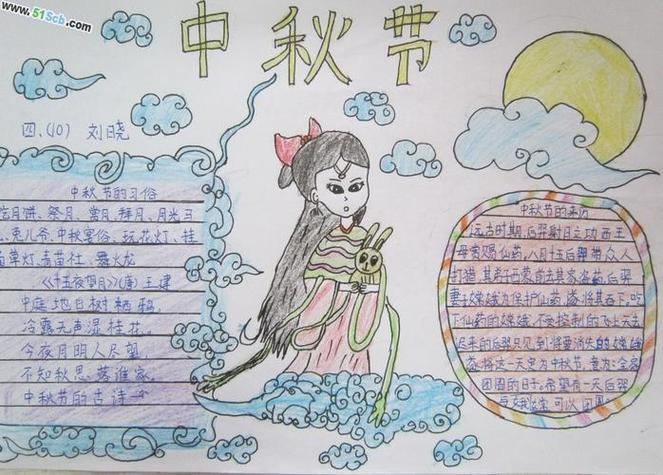 www.51Scb.com
中秋节
四、(10) 刘晓
中秋节的习俗
吃月饼、祭月、赏月、拜月、月光马
、兔儿爷、中秋宴俗、玩花灯、挂
草灯、青苗社、舞火龙
《十五夜望月》(唐) 王建
中庭地白树栖鸦，
冷露无声湿桂花。
今夜月明人尽望，
不知秋思落谁家。
中秋节的古诗
中秋节的来历
远古时期，后羿射日立功西王
母赏赐仙药，八月十五后羿带众人
打猎，其弟子西蒙前去其家盗药后羿
妻嫦娥为保护仙药将其吞下，吃
下仙药的嫦娥不受控制的飞上天去
后羿只见到将要消失的嫦娥
将这一天定为中秋节，意为：全家
团圆的日子。希望有一天后羿
可以团圆